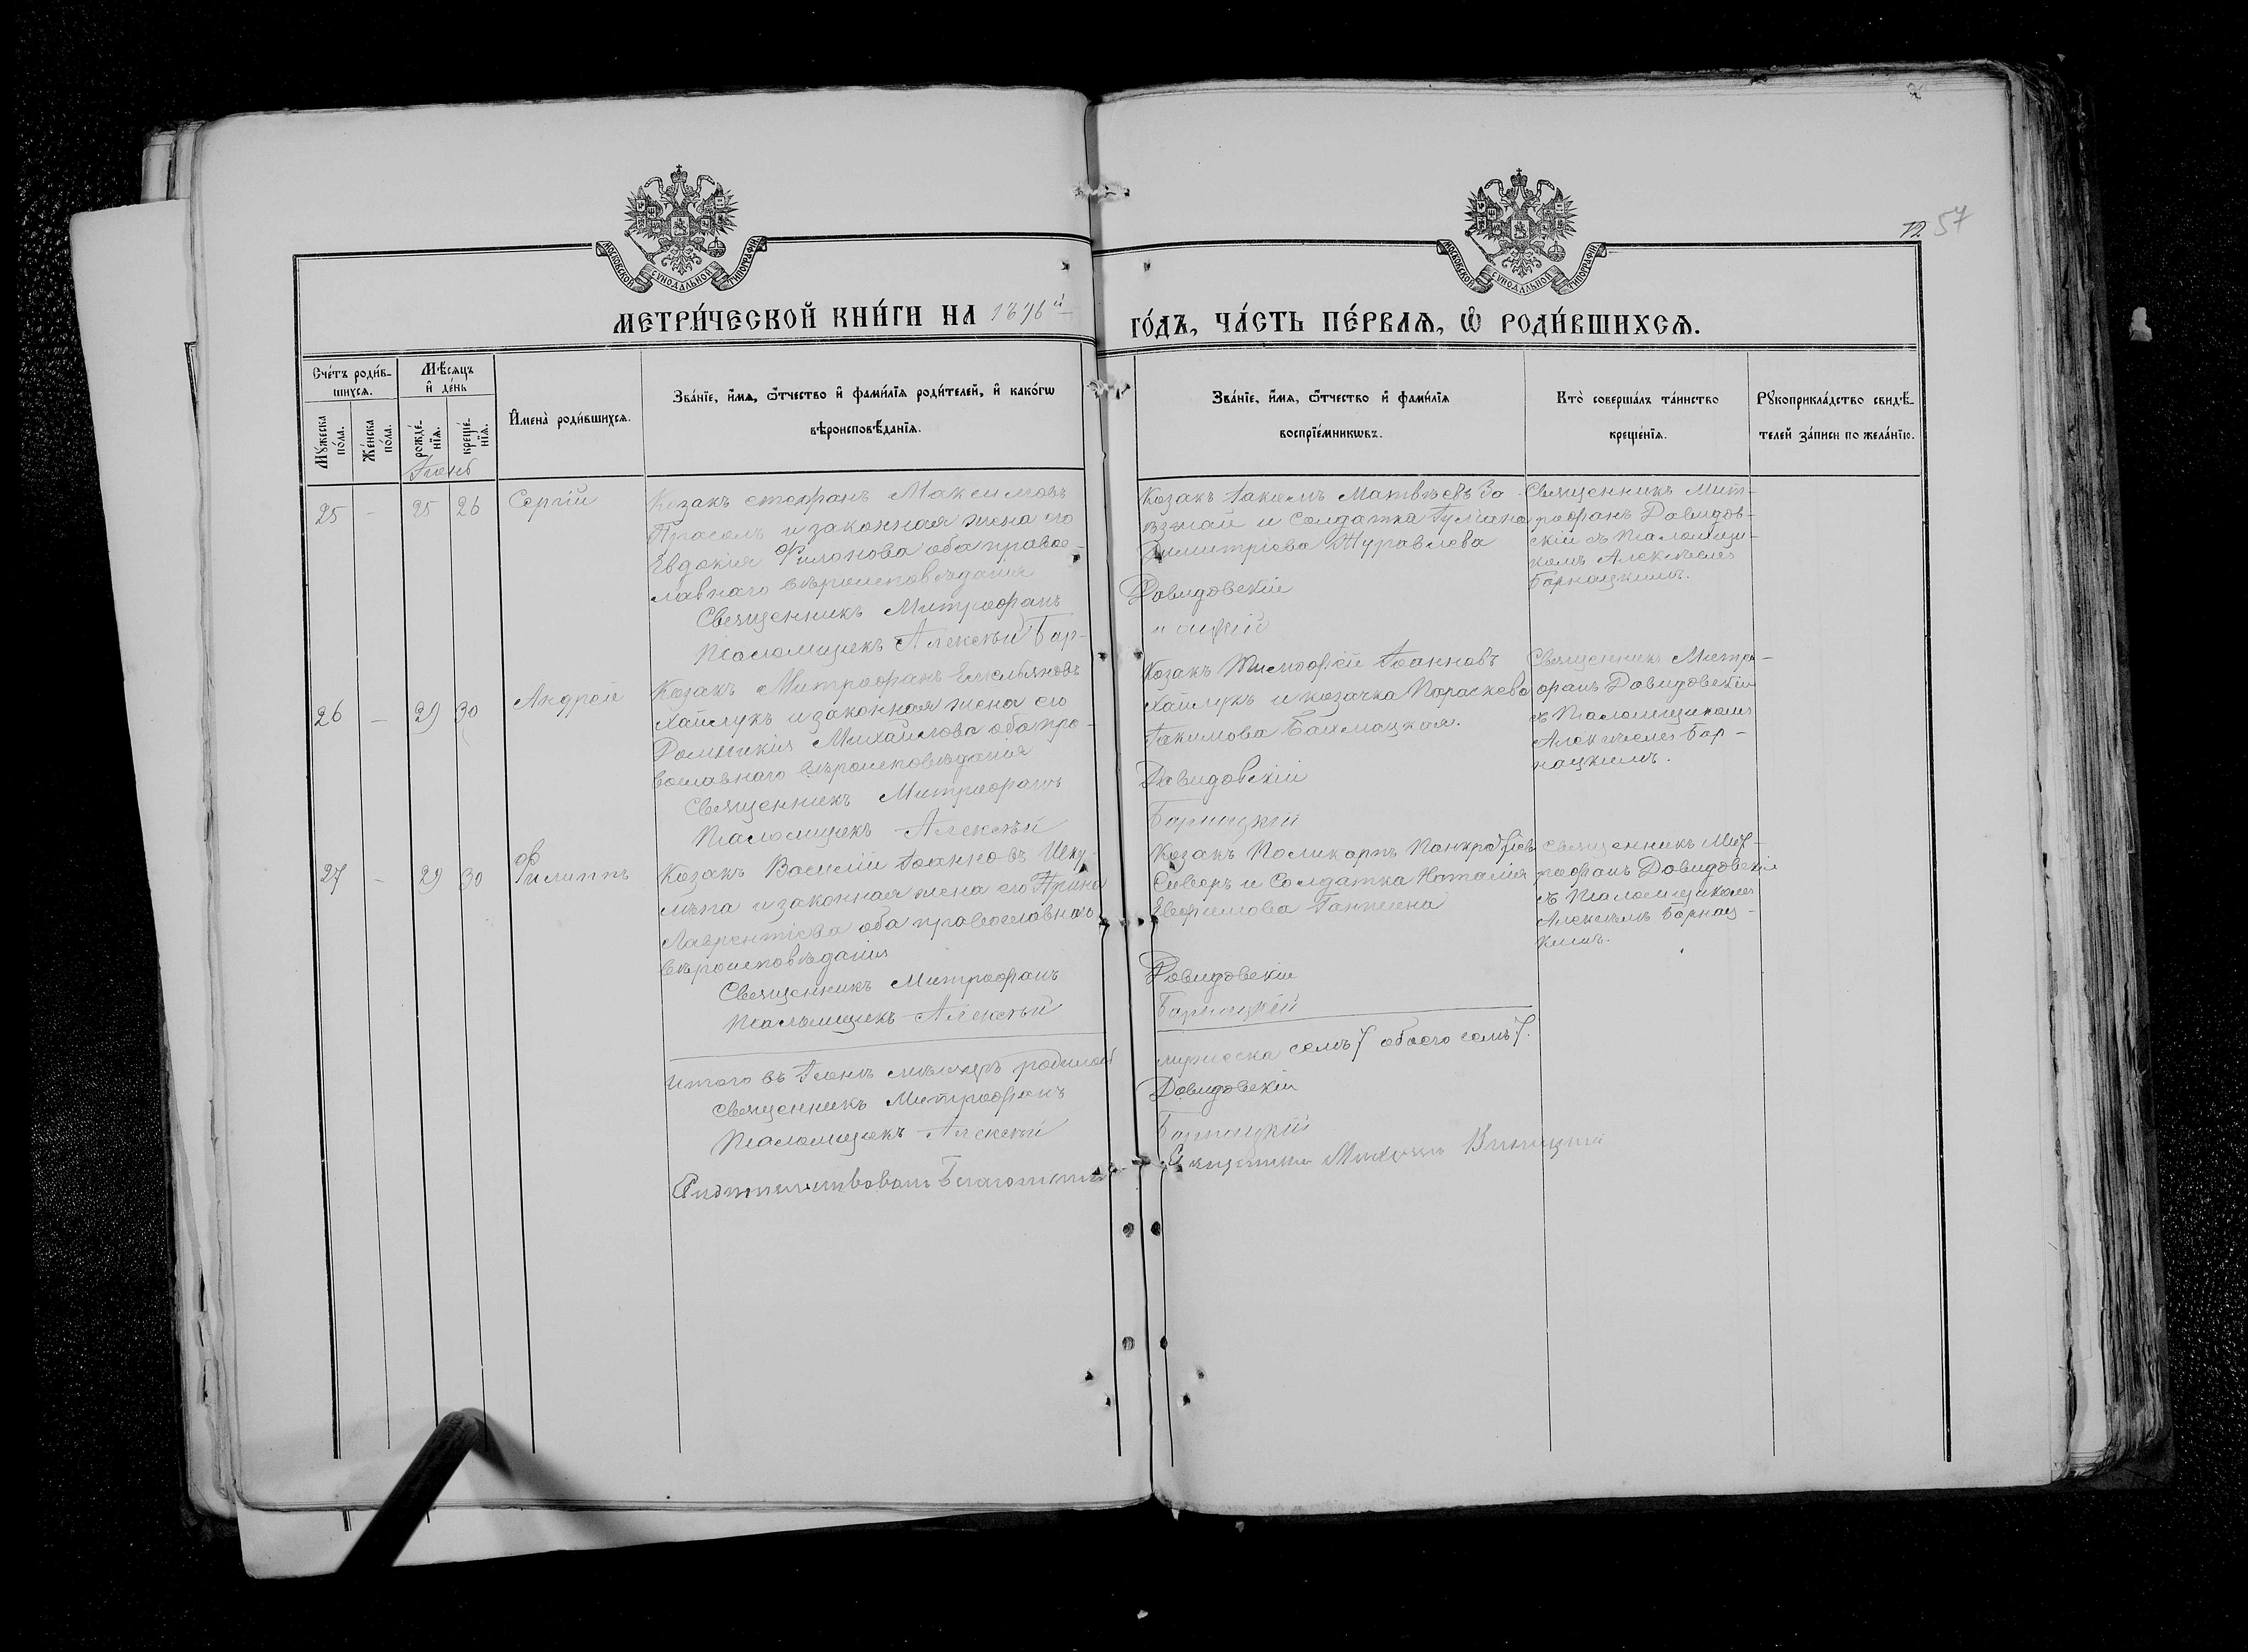 57
МОСКОВСКОЙ СѴНОДАЛЬНОЙ ТИПОГРАФІИ
МОСКОВСКОЙ СѴНОДАЛЬНОЙ ТИПОГРАФІИ
МЕТРИ́ЧЕСКОЙ КНИ́ГИ НА 1876й
ГО́ДЪ, ЧА́СТЬ ПЕ́РВАѦ, Ѡ҆ РОДИ́ВШИХСѦ.
Сче́тъ роди́в-
шихсѧ.
Мѣ́сѧцъ
и҆ де́нь
Мꙋ́жеска по́ла.
Же́нска по́ла.
рожде́-
нїѧ.
креще́-
нїѧ.
И҆мена̀ роди́вшихсѧ.
Зва́нїе, и҆́мѧ, ѻ҆́тчество и҆ фами́лїѧ роди́телей, и҆ како́гѡ
вѣроисповѣ́данїѧ.
Зва́нїе, и҆́мѧ, ѻ҆́тчество и҆ фами́лїѧ
воспрїе́мникѡвъ.
Кто̀ соверша́лъ та́инство
креще́нїѧ.
Рꙋкоприкла́дство свидѣ́-
телей за́писи по жела́нїю.
Іюнь
25 - 25 26 Сергій
Козакъ Стефанъ Максимовъ
Прасолъ и законная жена его
Евдокія Филонова оба правос-
лавнаго вѣроисповѣданія
Священникъ Митрофанъ
Псаломщикъ Алексѣй Бар-
Козакъ Іакимъ Матвѣевъ
и Солдатка Іуліана
Димитріева Журавлева
Давидовскій
Священникъ Мит-
рофанъ Давидов-
скій съ Псаломщи-
комъ Алексѣемъ
Барнацкимъ.
26 - 29 30 Андрей
Козакъ Митрофанъ Емельяновъ
Хайлукъ и законная жена его
Михайлова оба пра-
вославнаго вѣроисповѣданія
Священникъ Митрофанъ
Псаломщикъ Алексѣй
Козакъ Тимофей Іоанновъ
Хайлукъ и козачка Параскева
Іакимова Бахмацкая.
Давидовскій
Барнацкій
Священникъ Митро-
фанъ Давидовскій
съ Псаломщикомъ
Алексѣемъ Бар-
нацкимъ.
27 - 29 30 Филиппъ
Козакъ Василій Іоанновъ Шку-
и законная жена его Ирина
Лаврентіева оба православнаго
вѣроисповѣданія
Священникъ Митрофанъ
Псаломщикъ Алексѣй
Козакъ Поликарпъ Панкратіевъ
Сиворъ и Солдатка Наталія
Евфимова
Давидовскій
Барнацкій
Священникъ Мит-
рофанъ Давидовскій
съ Псаломщикомъ
Алексѣемъ Барнац-
кимъ.
Итого въ Іюнѣ мѣсяцѣ родилось
мужеска семь 7 обоего семь 7.
Священникъ Митрофанъ
Давидовскій
Псаломщикъ Алексѣй
Барнацкій
Свидѣтельствовалъ Благочинный
Священникъ